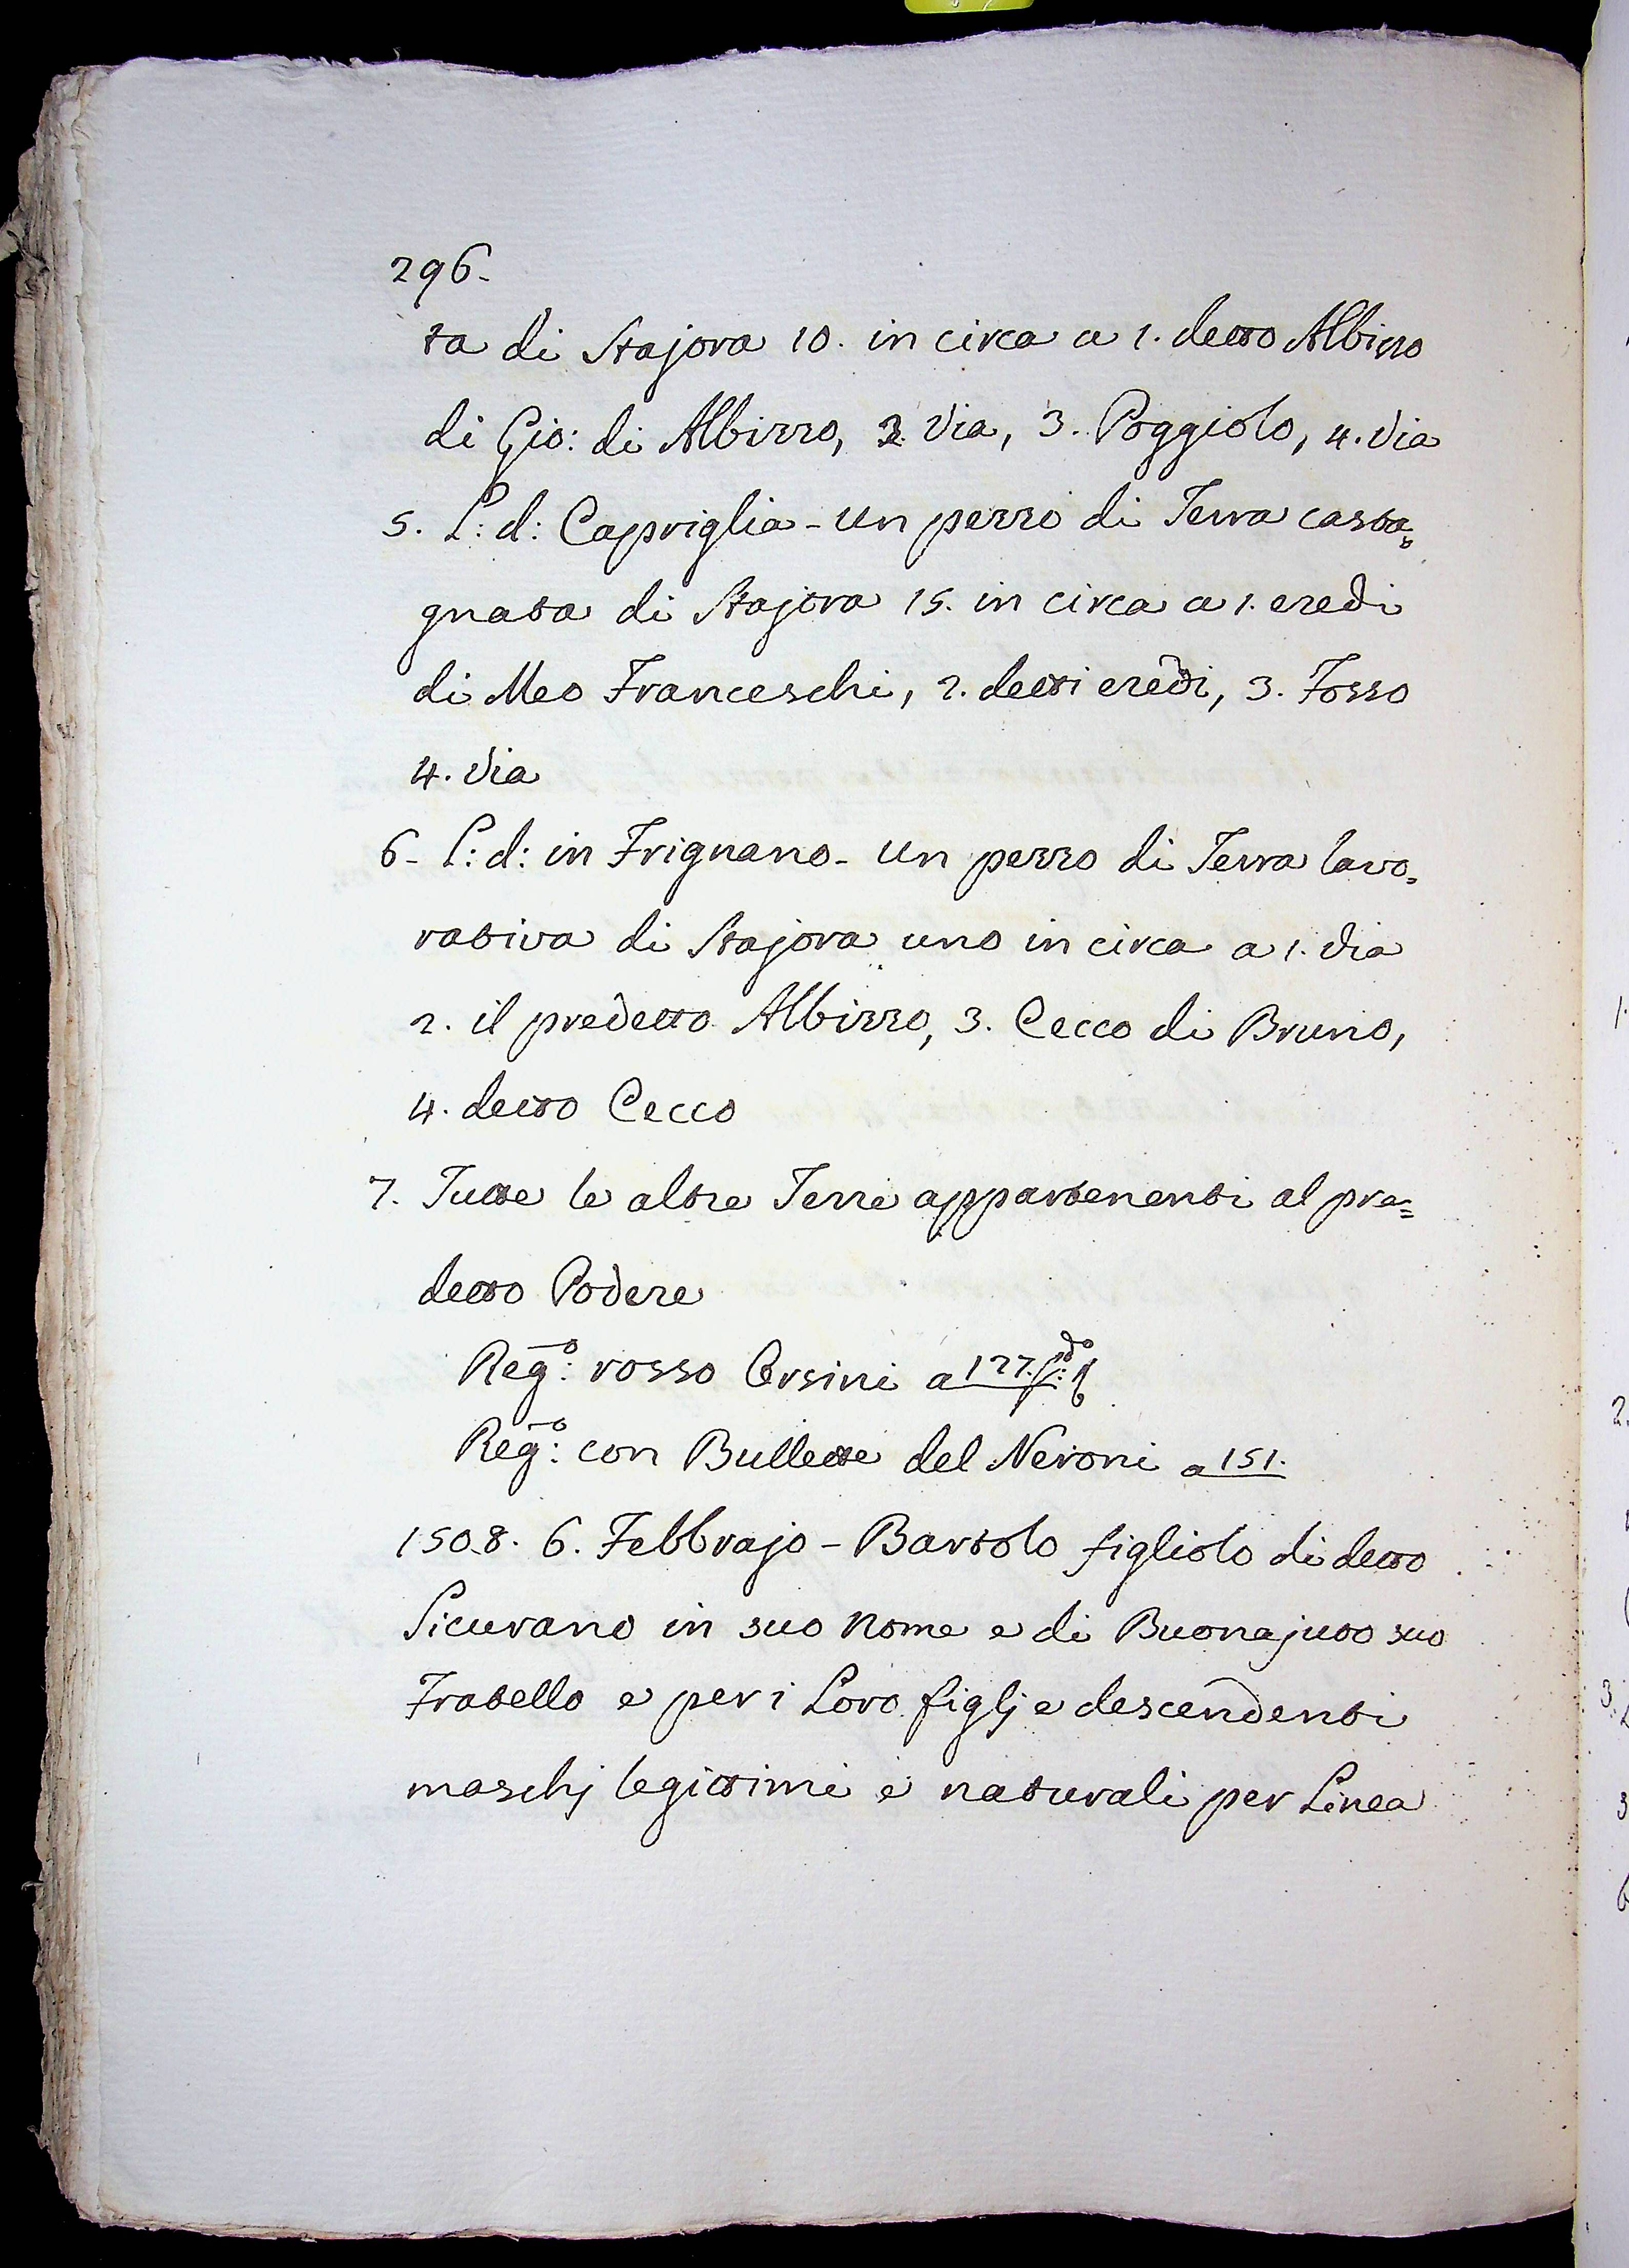 296.
ta di Stajora 10. in circa a 1. detto Albizzo
di Gio: di Albizzo, 2. Via, 3. Poggiolo, 4. Via
5. L: d: Capriglia - un pezzo di Terra casta=
gnata di Stajora 15. in circa a 1. eredi
di Meo Franceschi, 2. detti eredi, 3. Fosso
4. Via
6. L: d: in Frignano - un pezzo di Terra lavo=
rativa di Stajora uno in circa a 1. Via
2. il predetto Albizzo, 3. Cecco di Bruno,
4. detto Cecco
7. Tutte le altre Terre appartenenti al pre=
detto Podere
Reg.o: rosso Orsini a 127.
Reg.o: con Bullette del Neroni a 151.
1508. 6. Febbrajo - Bartolo figliolo di detto
Sicurano in suo nome e di Buonajuto suo
Fratello e per i Loro figlj e descendenti
maschj legittimi e naturali per Linea